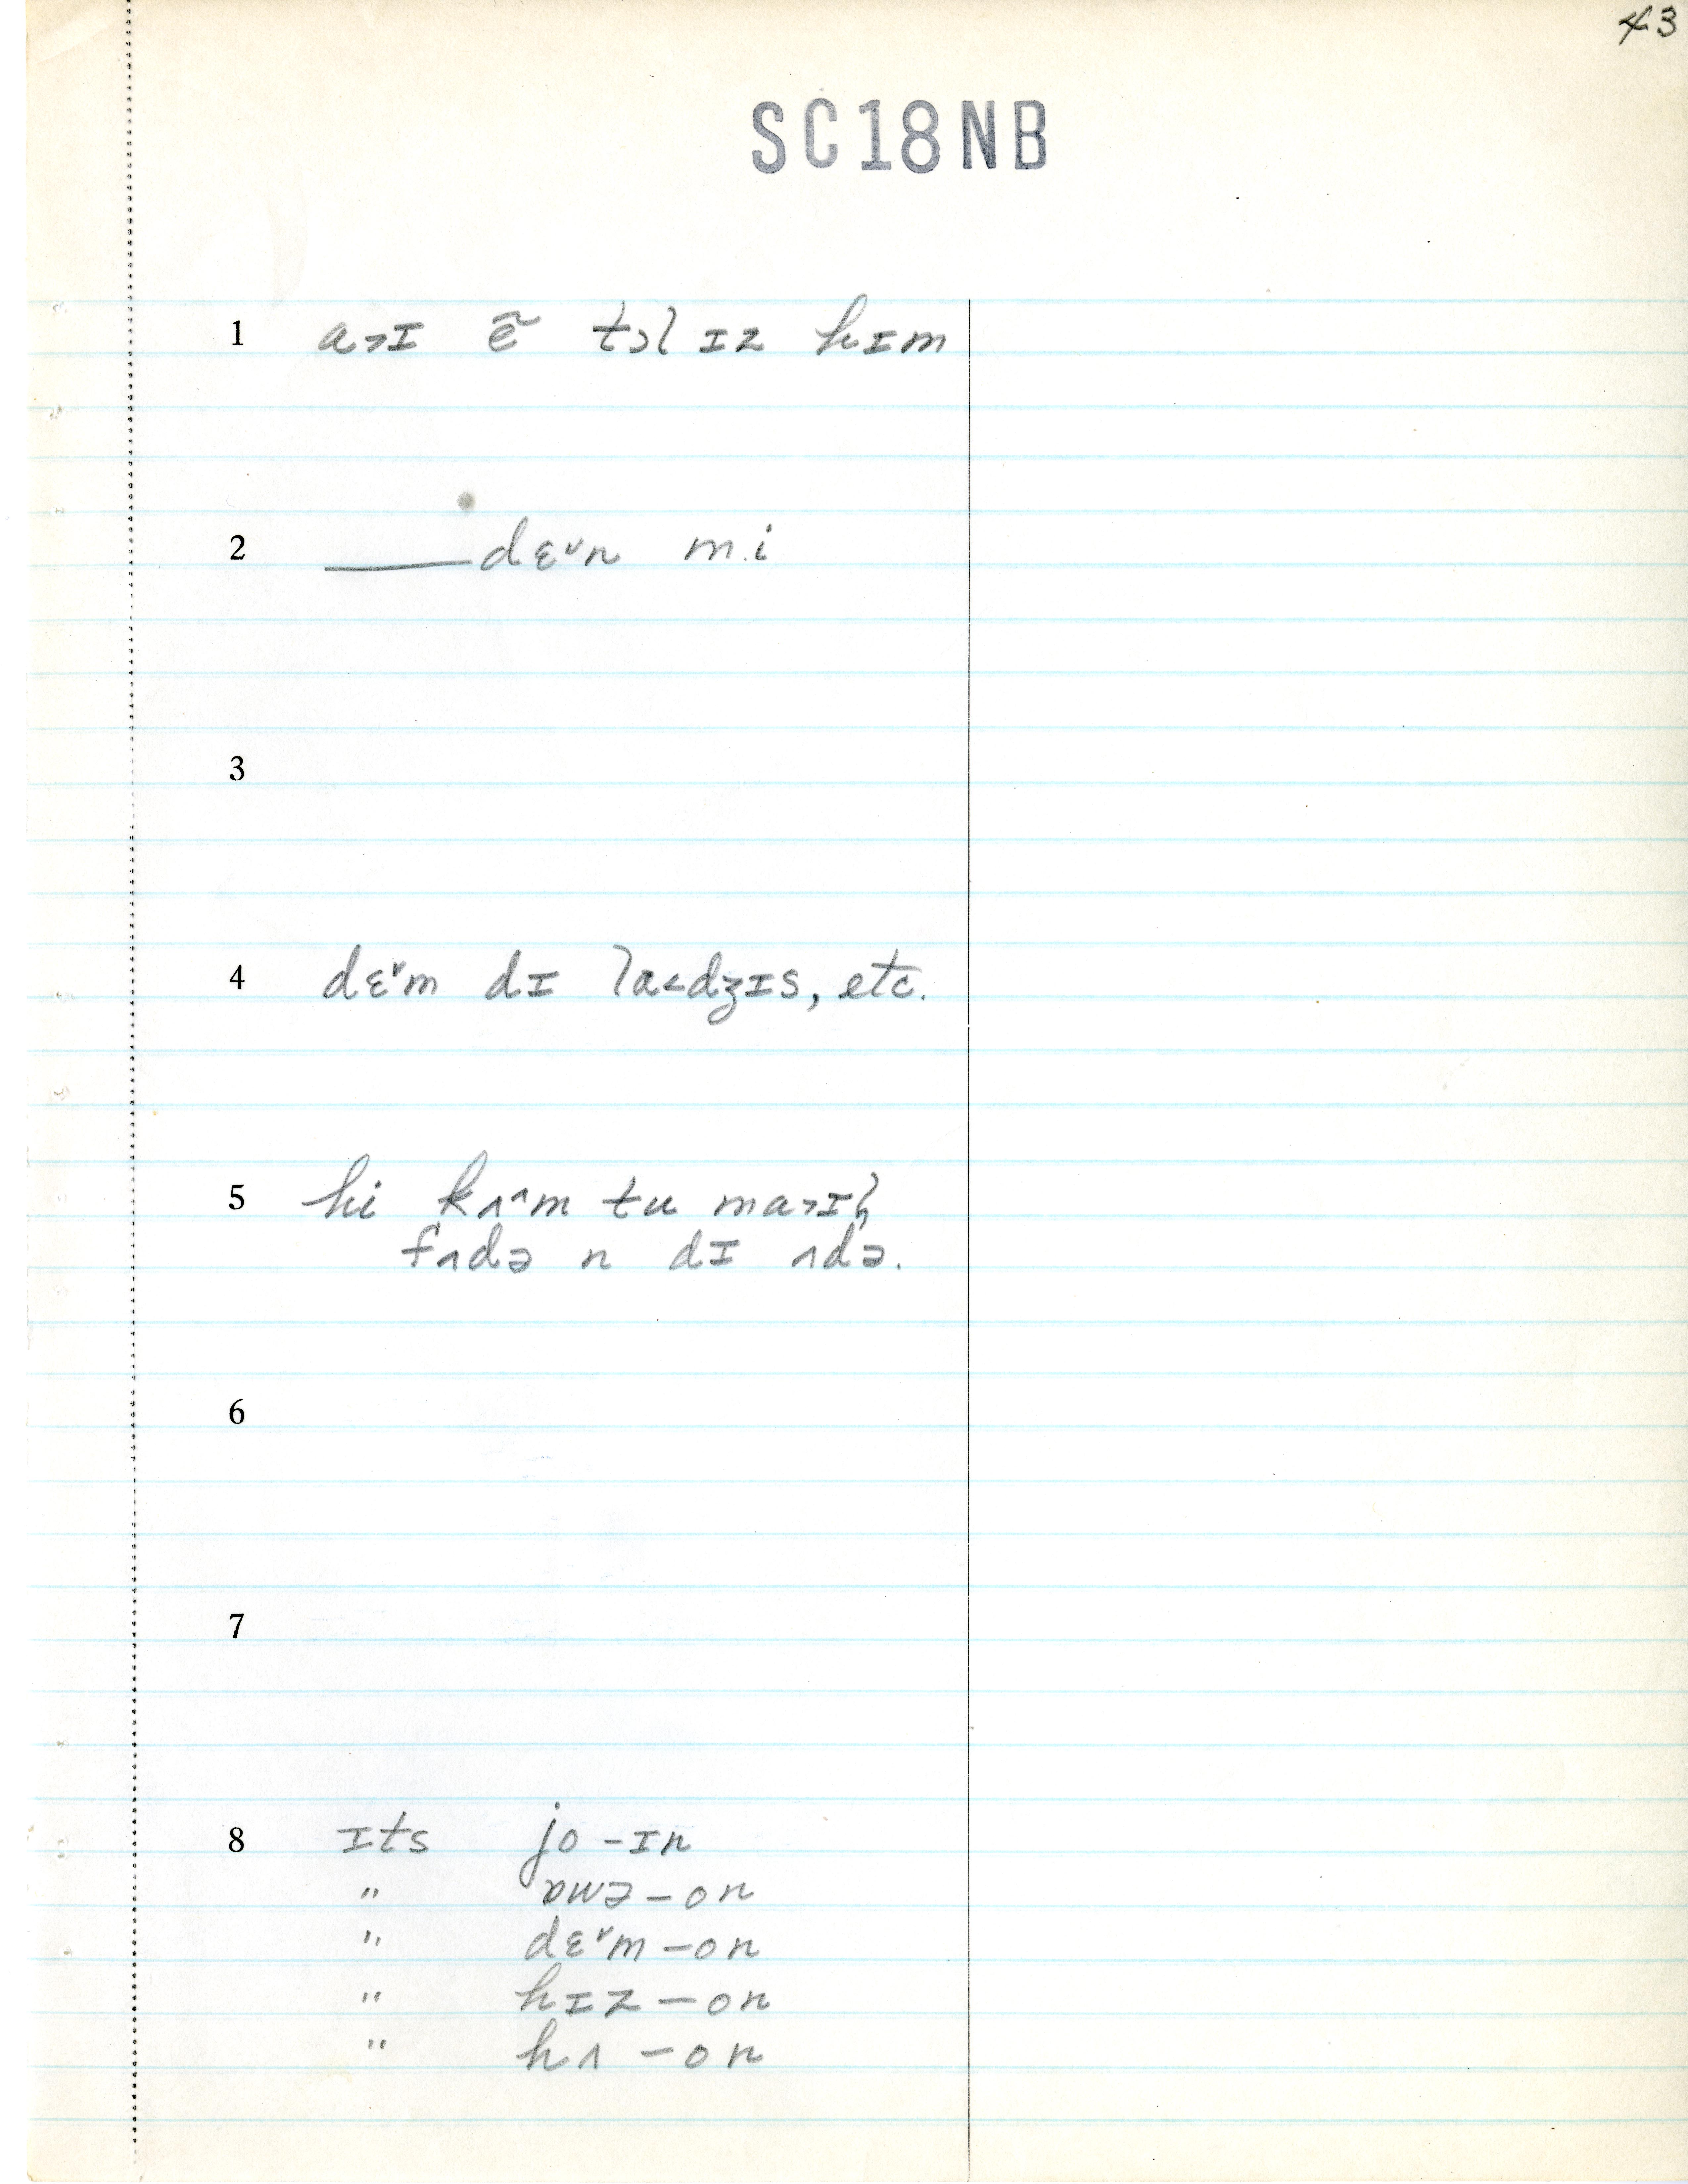 43
SC18NB
1 a˃ɪ ẽ tɔl ɪz hɪm
2 ____dɛ˅n mi
3
4 dɛ˅m dɪ la˂dʒɪs, etc.
5 hi kʌ^m tu ma˃ɪ
fʌdə n dɪ ʌdə.
6
7
8 ɪts jo-ɪn
" ɒwə-on
" dɛ˅m-on
" hɪz-on
" hʌ-on